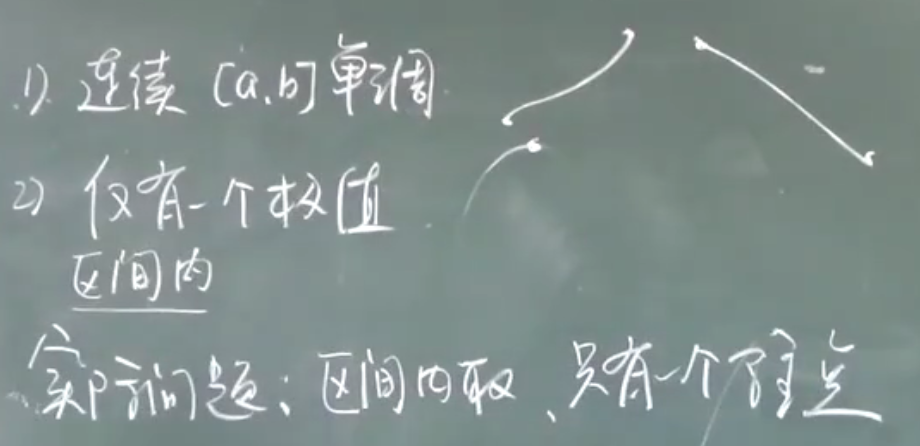 1) 连续 [a,b] 单调
2) 仅有一个极值
区间内
实际问题:区间内取、只有一个驻点